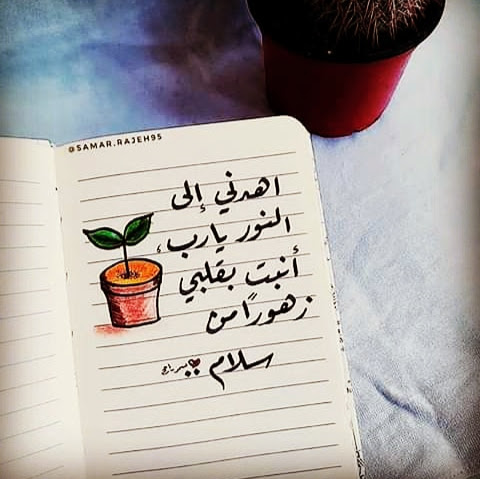 @SAMAR.RAJEH95
اهدني إلى
النور يارب،
أنبت بقلبي
زهورًا من
سلام